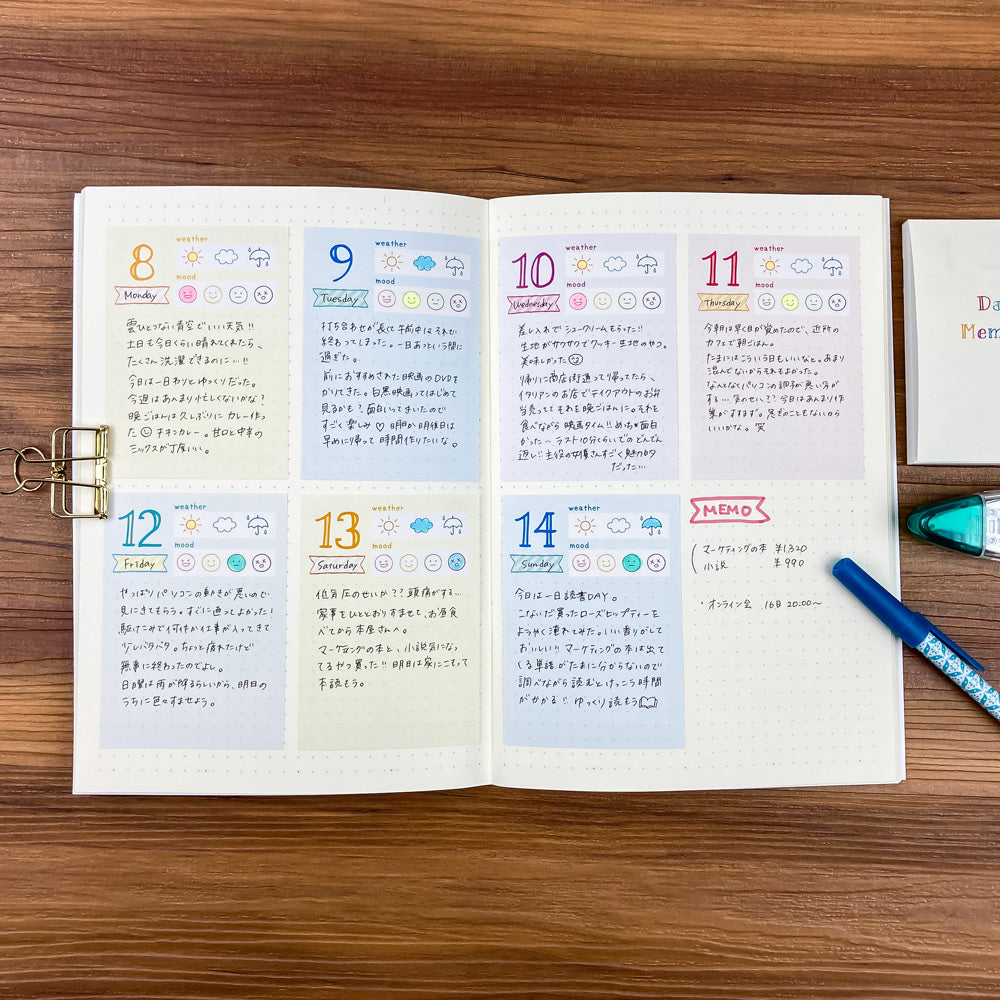 8
weather
mood
Monday
雲ひとつない青空でいい天気!!
土日も今日くらい晴れてくれたら、
たくさん洗濯できるのに…!!
今日は一日わりとゆっくりだった。
今週はあんまり忙しくないかな?
晩ごはんは久しぶりにカレー作っ
た チキンカレー。甘口と中辛の
ミックスが丁度いい。
9
weather
mood
Tuesday
打ち合わせが長くて午前中はそれで
終わってしまった。一日あっという間に
過ぎた。
前におすすめされた映画のDVDを
かりてきた。白黒映画ってはじめて
見るかも?面白いってきいたので
すごく楽しみ♡ 明日か明後日は
早めに帰って時間作りたいな。
10
weather
mood
Wednesday
差し入れでシュークリームもらった!!
生地がサクサクでクッキー生地のやつ。
美味しかった
帰りに商店街通って帰ってたら、
イタリアンのお店でテイクアウトのお弁
当売っててそれを晩ごはんに。それを
食べながら映画タイム!!めっちゃ面白
かった…ラスト10分くらいでのどんでん
返し!!主役の女優さんすごく魅力的
だった…
11
weather
mood
Thursday
今朝は早く目が覚めたので、近所の
カフェで朝ごはん。
たまにはこういう日もいいなと。あまり
混んでないからそれもよかった。
なんとなくパソコンの調子が悪い気が
する…気のせい??今日はあんまり作
業がすすまず。急ぎのこともないから
いいかな。笑
12
weather
mood
Friday
やっぱりパソコンの動きが悪いので
見にきてもらう。すぐに直ってよかった!
駆けこみで何件か仕事が入ってきて
少しバタバタ。ちょっと疲れたけど
無事に終わったのでよし。
日曜は雨が降るらしいから、明日の
うちに色々すませよう。
13
weather
mood
Saturday
低気圧のせいか??頭痛がする…
家事をひととおりすませて、お昼食
べてから本屋さんへ。
マーケティングの本と、小説気になっ
てるやつ買った!!明日は家にこもって
本読もう。
14
weather
mood
Sunday
今日は一日読書DAY。
こないだ買ったローズヒップティーを
ようやく淹れてみた。いい香りがして
おいしい!!マーケティングの本は出て
くる単語がたまに分からないので
調べながら読むとけっこう時間
がかかる!ゆっくり読もう
MEMO
マーケティングの本 ¥1,320
小説 ¥990
・オンライン会 16日 20:00〜
Da
Mem